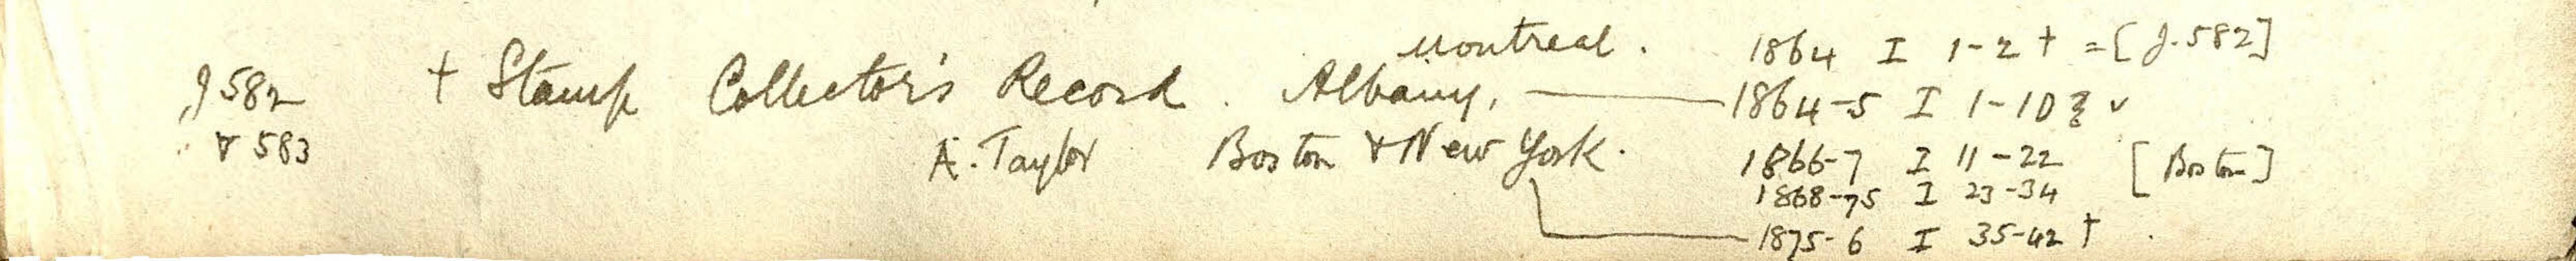 Montreal. 1864 I 1-2 † = [J.582]
J 582 † Stamp Collector's Record. Albany, 1864-5 I 1-10 } ✓
& 583 A. Taylor Boston & New York. 1866-7 I 11-22 [Boston]
1868-75 I 23-34
1875-6 I 35-42 †